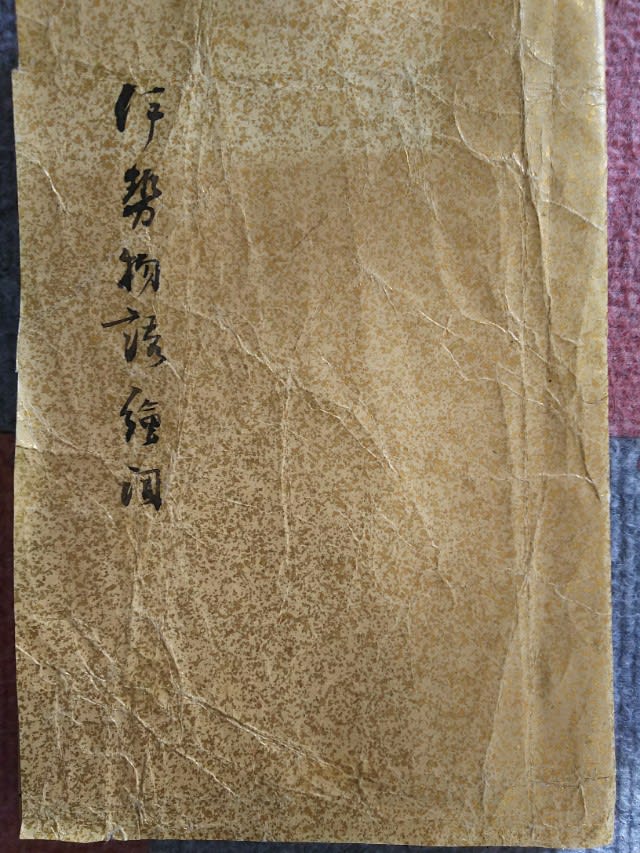 伊勢物語繪詞